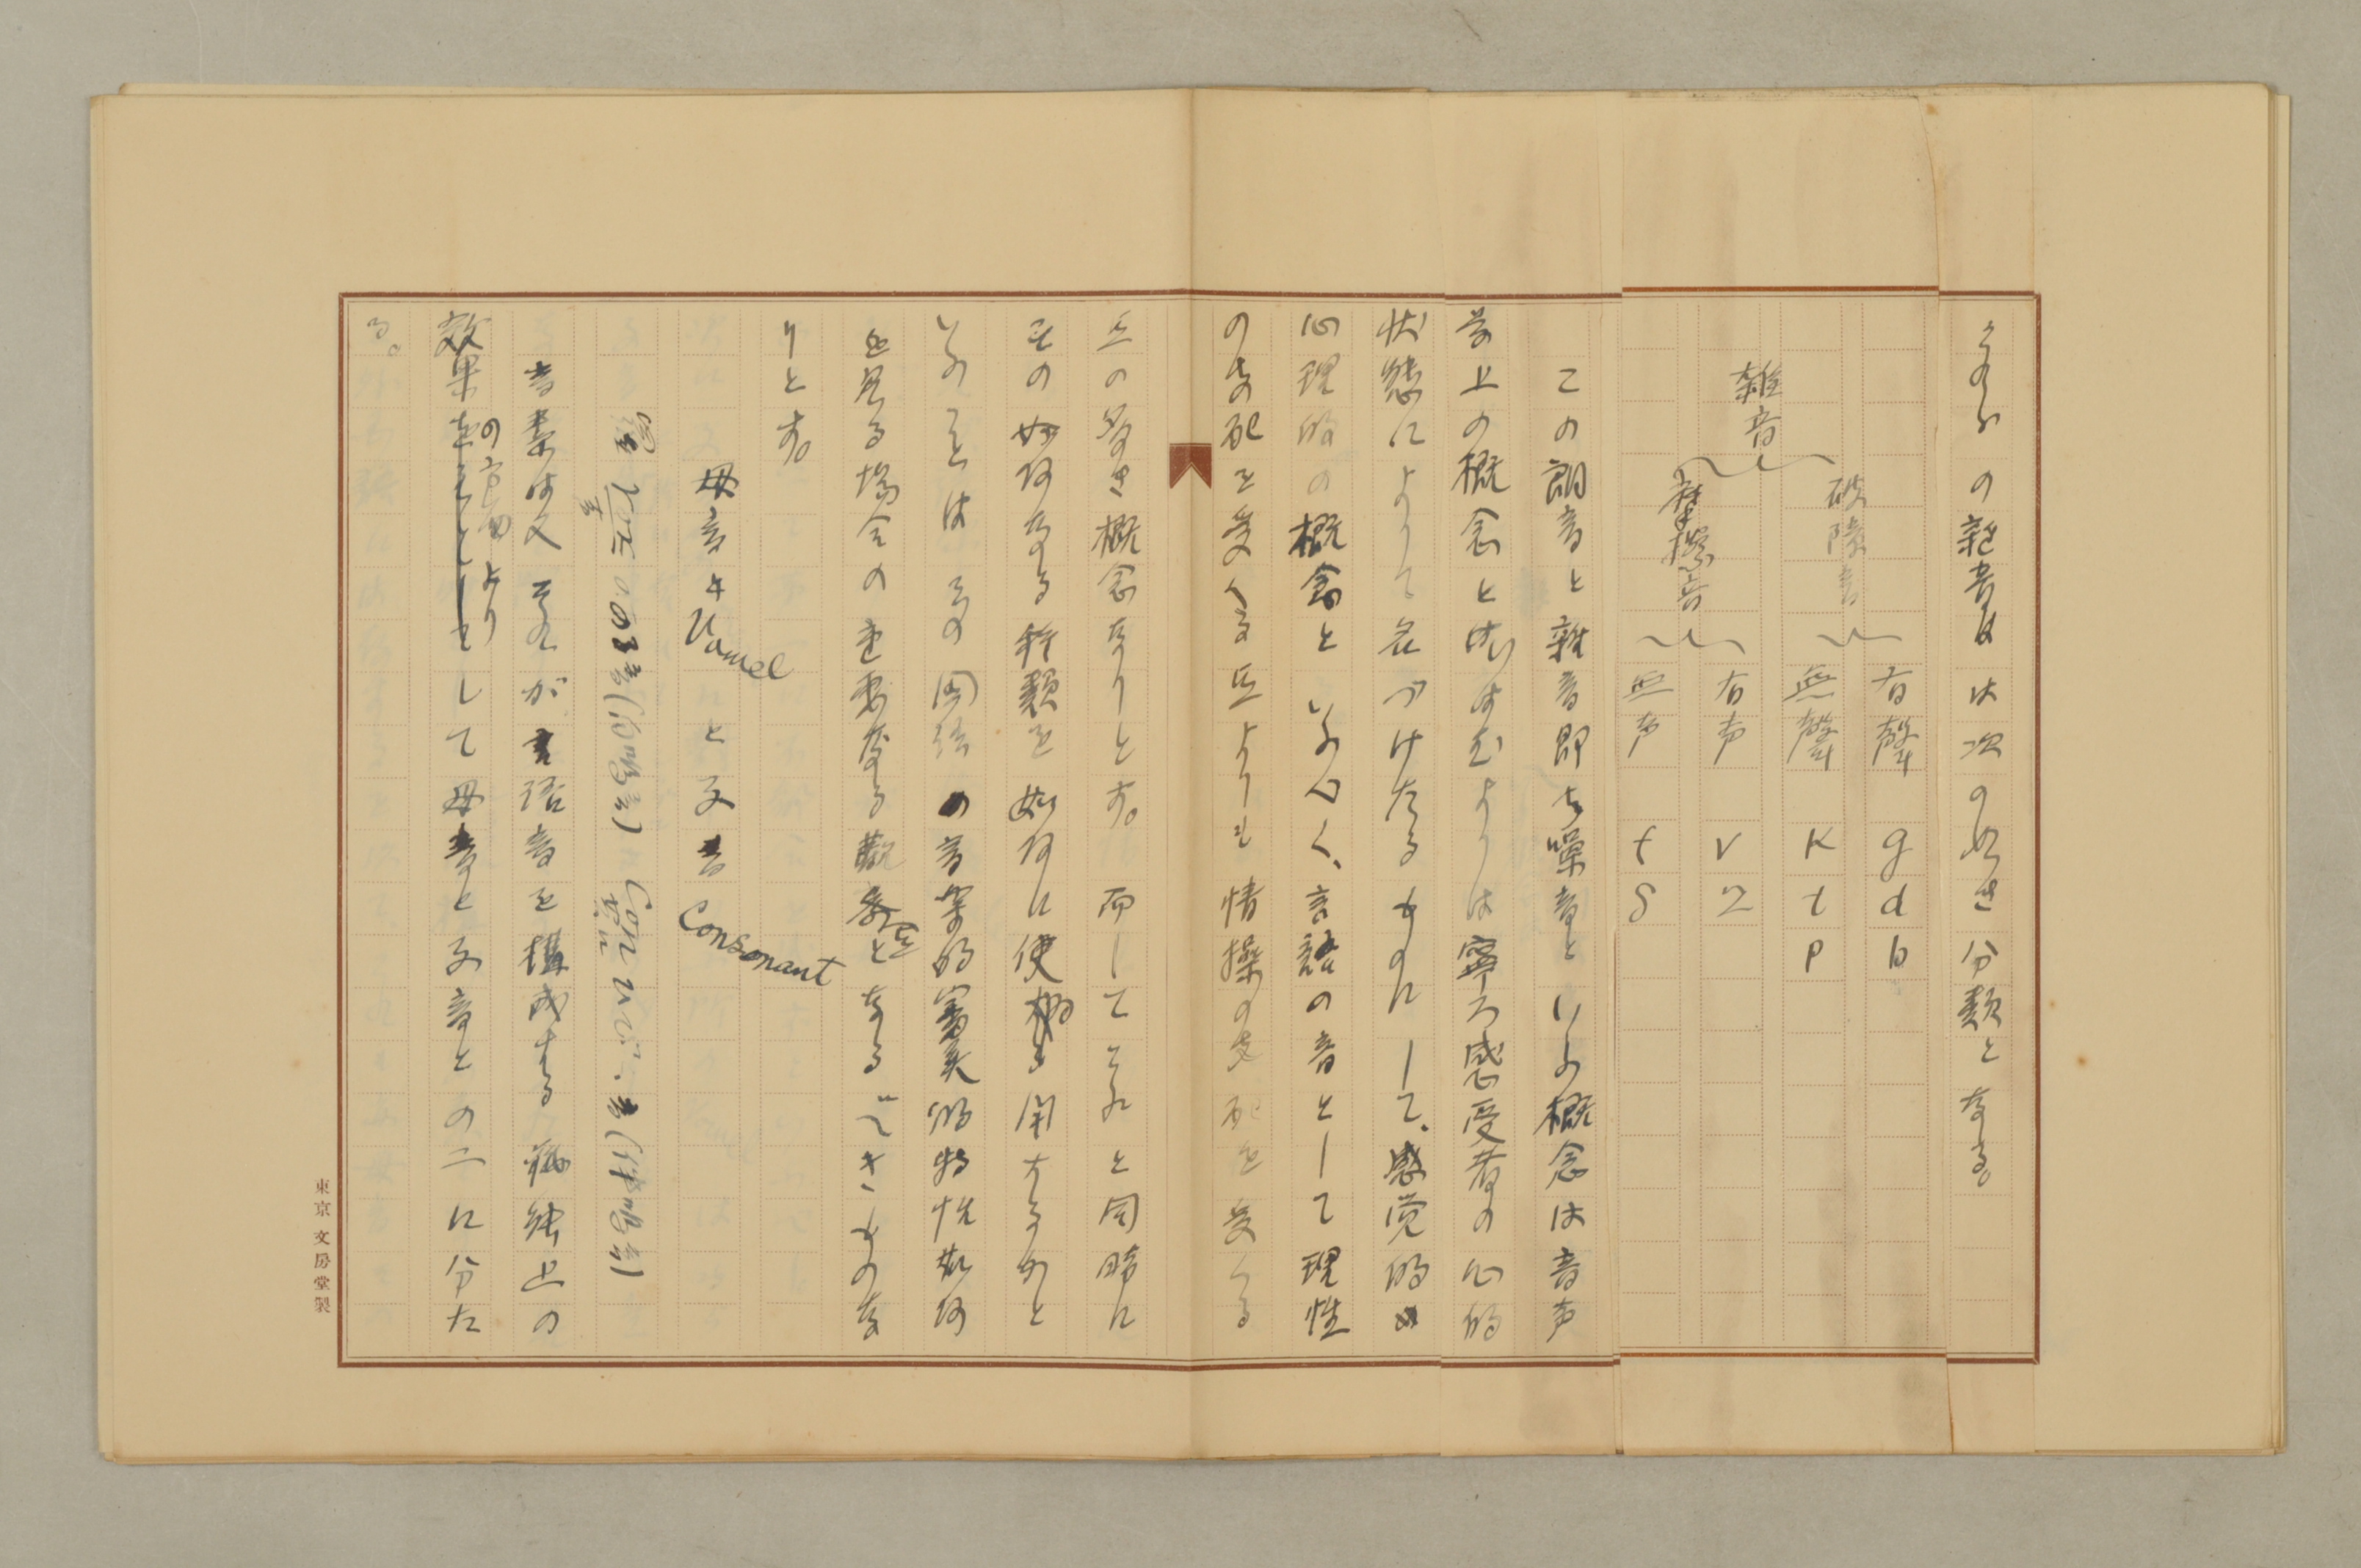 これらの雑音は次の如き分類となる。
雑音
破障音
有聲 g d b
無聲 K t p
摩擦音
有声 v z
無声 f s
この朗音と雑音即ち噪音といふ概念は音声
学上の概念と云はむよりは寧ろ感受者の心的
状態によりて名づけたるものにして、感覚的
心理的の概念といふべく、言語の音として理性
の支配を受くる点よりも情操の支配を受くる
点の多き概念なりとす。而してそれと同時に
その如何なる種類を如何に使用するかと
いふことは その国語の音楽的審美的特性如何
を見る場合の重要なる観察点となるべきものな
りとす。
母音 Vowel と子音 Consonant
音素は又それが言語音を構成する職能上の
の方面より
効果を として母音と子音との二に分た
る。
東京 文房堂製